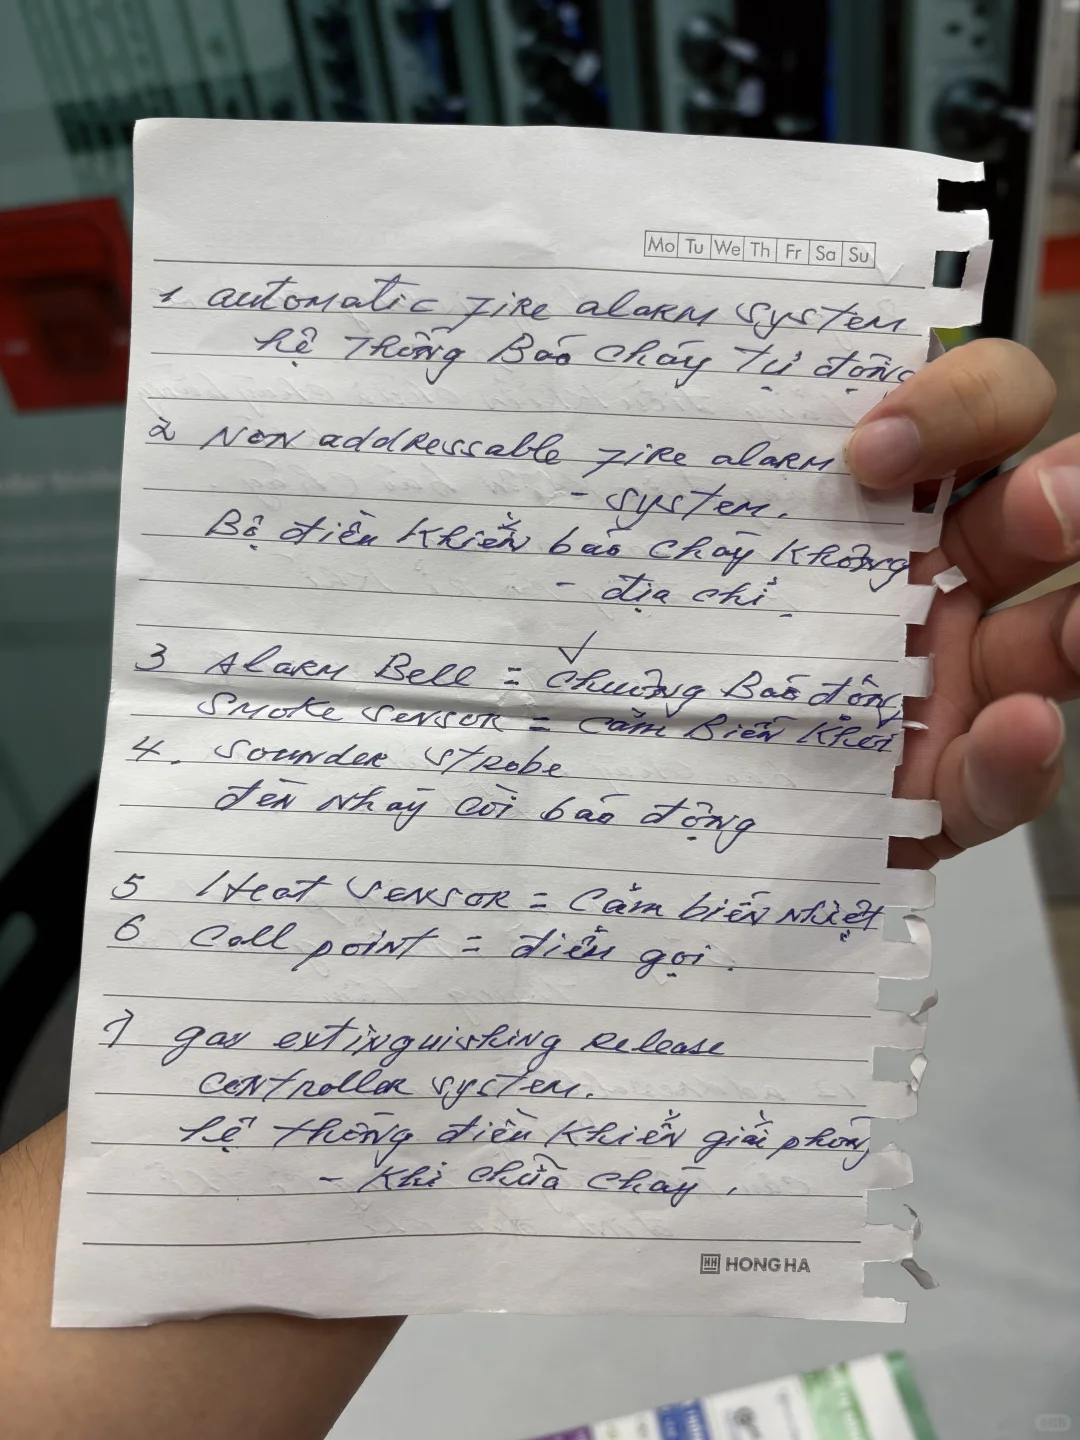 Mo Tu We Th Fr Sa Su
1 automatic fire alarm system
hệ thống Báo cháy tự động
2 Non addressable fire alarm
- system.
Bộ điều khiển báo cháy không
- địa chỉ
3 Alarm Bell = chuông Báo động
Smoke sensor = cảm Biến khói
4. Sounder strobe
đèn nháy còi báo động
5 Heat sensor = cảm biến nhiệt
6 Call point = điểm gọi.
7 gas extinguishing release
controller system.
hệ thống điều khiển giải phóng
- khí chữa cháy.
HONG HA